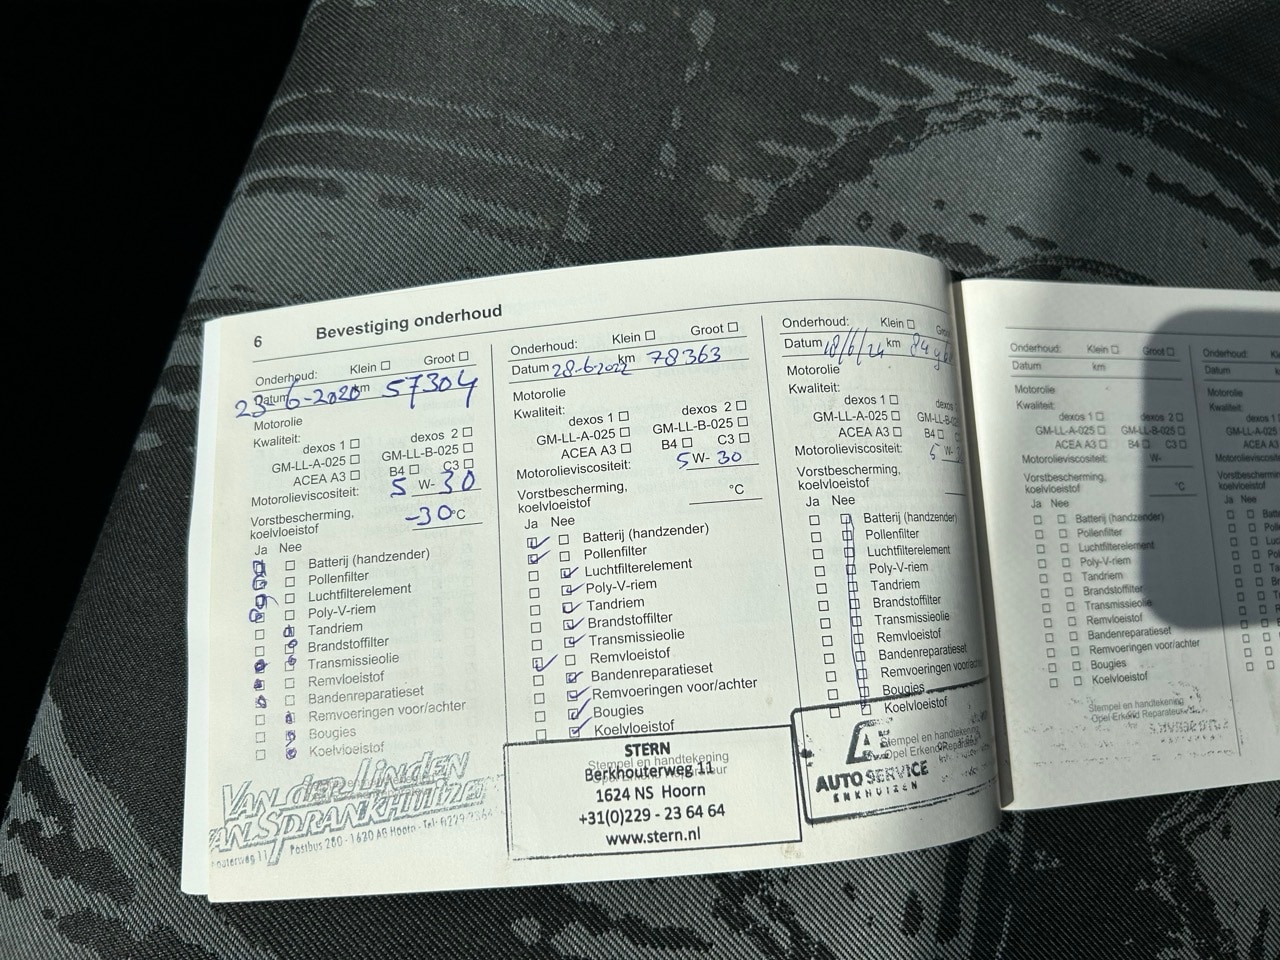 6 Bevestiging onderhoud
Onderhoud: Klein Groot
Datum 23-6-2020 km 57304
Motorolie
Kwaliteit:
dexos 1 dexos 2
GM-LL-A-025 GM-LL-B-025
ACEA A3 B4 C3
Motorolieviscositeit: 5 W- 30
Vorstbescherming,
koelvloeistof -30 °C
Ja Nee
Batterij (handzender)
Pollenfilter
Luchtfilterelement
Poly-V-riem
Tandriem
Brandstoffilter
Transmissieolie
Remvloeistof
Bandenreparatieset
Remvoeringen voor/achter
Bougies
Koelvloeistof
VAN DER LINDEN
VAN SPRANKHUIZEN
Postbus 280 - 1620 AB Hoorn - Tel. 0229
Onderhoud: Klein Groot
Datum 28-6-2022 km 78363
Motorolie
Kwaliteit:
dexos 1 dexos 2
GM-LL-A-025 GM-LL-B-025
ACEA A3 B4 C3
Motorolieviscositeit: 5 W- 30
Vorstbescherming,
koelvloeistof °C
Ja Nee
Batterij (handzender)
Pollenfilter
Luchtfilterelement
Poly-V-riem
Tandriem
Brandstoffilter
Transmissieolie
Remvloeistof
Bandenreparatieset
Remvoeringen voor/achter
Bougies
Koelvloeistof
Stempel en handtekening
STERN
Berkhouterweg 11
1624 NS Hoorn
+31(0)229 - 23 64 64
www.stern.nl
Onderhoud: Klein
Datum 18/6/24 km
Motorolie
Kwaliteit:
dexos 1 dexos
GM-LL-A-025
ACEA A3 B4
Motorolieviscositeit: 5 W-
Vorstbescherming,
koelvloeistof
Ja Nee
Batterij (handzender)
Pollenfilter
Luchtfilterelement
Poly-V-riem
Tandriem
Brandstoffilter
Transmissieolie
Remvloeistof
Bandenreparatieset
Remvoeringen
Bougies
Koelvloeistof
Stempel en handtekening
Opel Erkend Reparateur
AUTO SERVICE
ENKHUIZEN
Onderhoud: Klein Groot
Datum km
Motorolie
Kwaliteit:
dexos 1 dexos 2
GM-LL-A-025 GM-LL-B-025
ACEA A3 B4 C3
Motorolieviscositeit: W-
Vorstbescherming,
koelvloeistof °C
Ja Nee
Batterij (handzender)
Pollenfilter
Luchtfilterelement
Poly-V-riem
Tandriem
Brandstoffilter
Transmissieolie
Remvloeistof
Bandenreparatieset
Remvoeringen voor/achter
Bougies
Koelvloeistof
Stempel en handtekening
Opel Erkend Reparateur
Onderhoud:
Datum
Motorolie
Kwaliteit:
Ja Nee